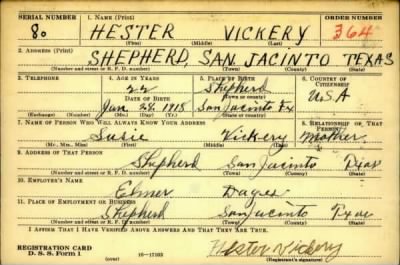 SERIAL NUMBER 1. NAME (Print) ORDER NUMBER
80 HESTER VICKERY 364
(First) (Middle) (Last)
2. ADDRESS (Print)
SHEPHERD, SAN JACINTO TEXAS
(Number and street or R. F. D. number) (Town) (County) (State)
3. TELEPHONE 4. AGE IN YEARS 5. PLACE OF BIRTH 6. COUNTRY OF CITIZENSHIP
22 Shepherd
DATE OF BIRTH (Town or county)
Jan 28, 1918 San Jacinto Tx U.S.A
(Exchange) (Number) (Mo.) (Day) (Yr.) (State or country)
7. NAME OF PERSON WHO WILL ALWAYS KNOW YOUR ADDRESS 8. RELATIONSHIP OF THAT PERSON
Susie Vickery Mother
(Mr., Mrs., Miss) (First) (Middle) (Last)
9. ADDRESS OF THAT PERSON
Shepherd San Jacinto Texas
(Number and street or R. F. D. number) (Town) (County) (State)
10. EMPLOYER'S NAME
Elmer
11. PLACE OF EMPLOYMENT OR BUSINESS
Shepherd San Jacinto Texas
(Number and street or R. F. D. number) (Town) (County) (State)
I AFFIRM THAT I HAVE VERIFIED ABOVE ANSWERS AND THAT THEY ARE TRUE.
Hester Vickery
REGISTRATION CARD
D. S. S. Form 1 (over) 16—17105 (Registrant's signature)